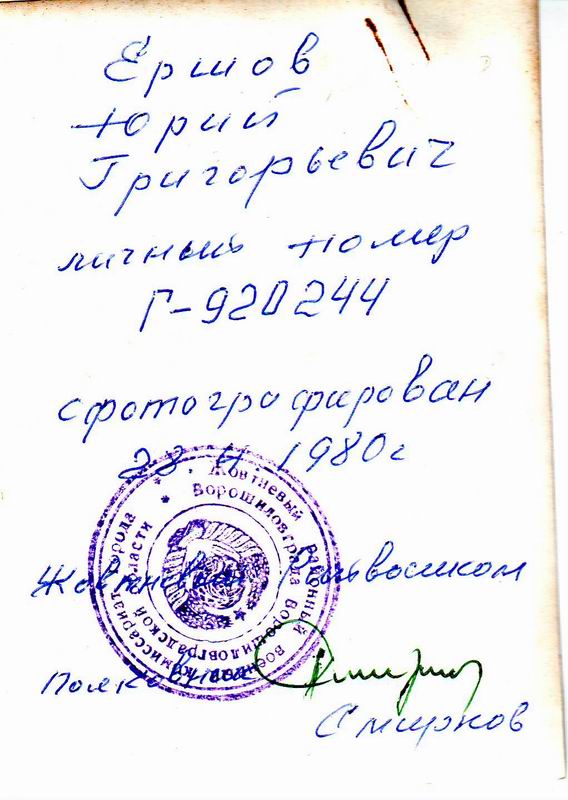 Ершов
Юрий
Григорьевич
личный номер
Г-920244
сфотографирован
1980г
Жовтневый районный военный комиссариат города
Ворошиловграда Ворошиловградской области
Жовтневый Райвоенком
Полковник
Смирнов